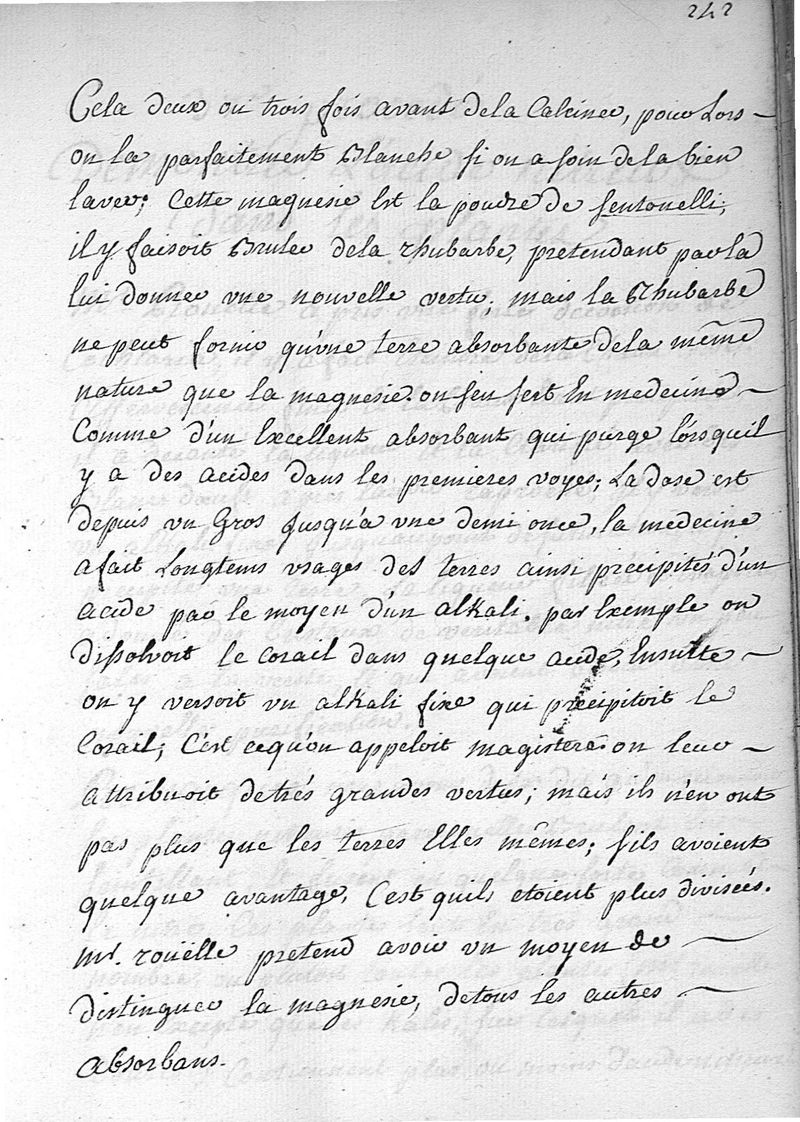 242
Cela deux ou trois fois avant dela Calciner, pour Lors
on la parfaitement Blanche si on a soin de la bien
laver; Cette magnesie Est la poudre de sentonelli;
il y faisoit Bruler dela rhubarbe, pretendant par la
lui donner une nouvelle vertu; mais la Rhubarbe
ne peut fornir qu'une terre absorbante dela même
nature que la magnesie. on s'en sert En medecine
Comme d'un Excellent absorbant qui purge lorsquil
y a des acides dans les premieres voyes; La dose est
depuis un Gros Jusqu'a une demi once, la medecine
a fait Longtems usages des terres ainsi précipités d'un
acide par le moyen d'un alkali. par Exemple on
dissolvoit le Corail dans quelque acide, Ensuitte
on y versoit un alkali fixe qui précipitoit le
Corail; C'est cequ'on appeloit magistere: on leur
attribuoit detrés grandes vertus; mais ils n'en ont
pas plus que les terres Elles mêmes; s'ils avoient
quelque avantage, C'est quils etoient plus divisées.
mr. rouëlle pretend avoir un moyen de
distinguer la magnesie, detous les autres
absorbans.